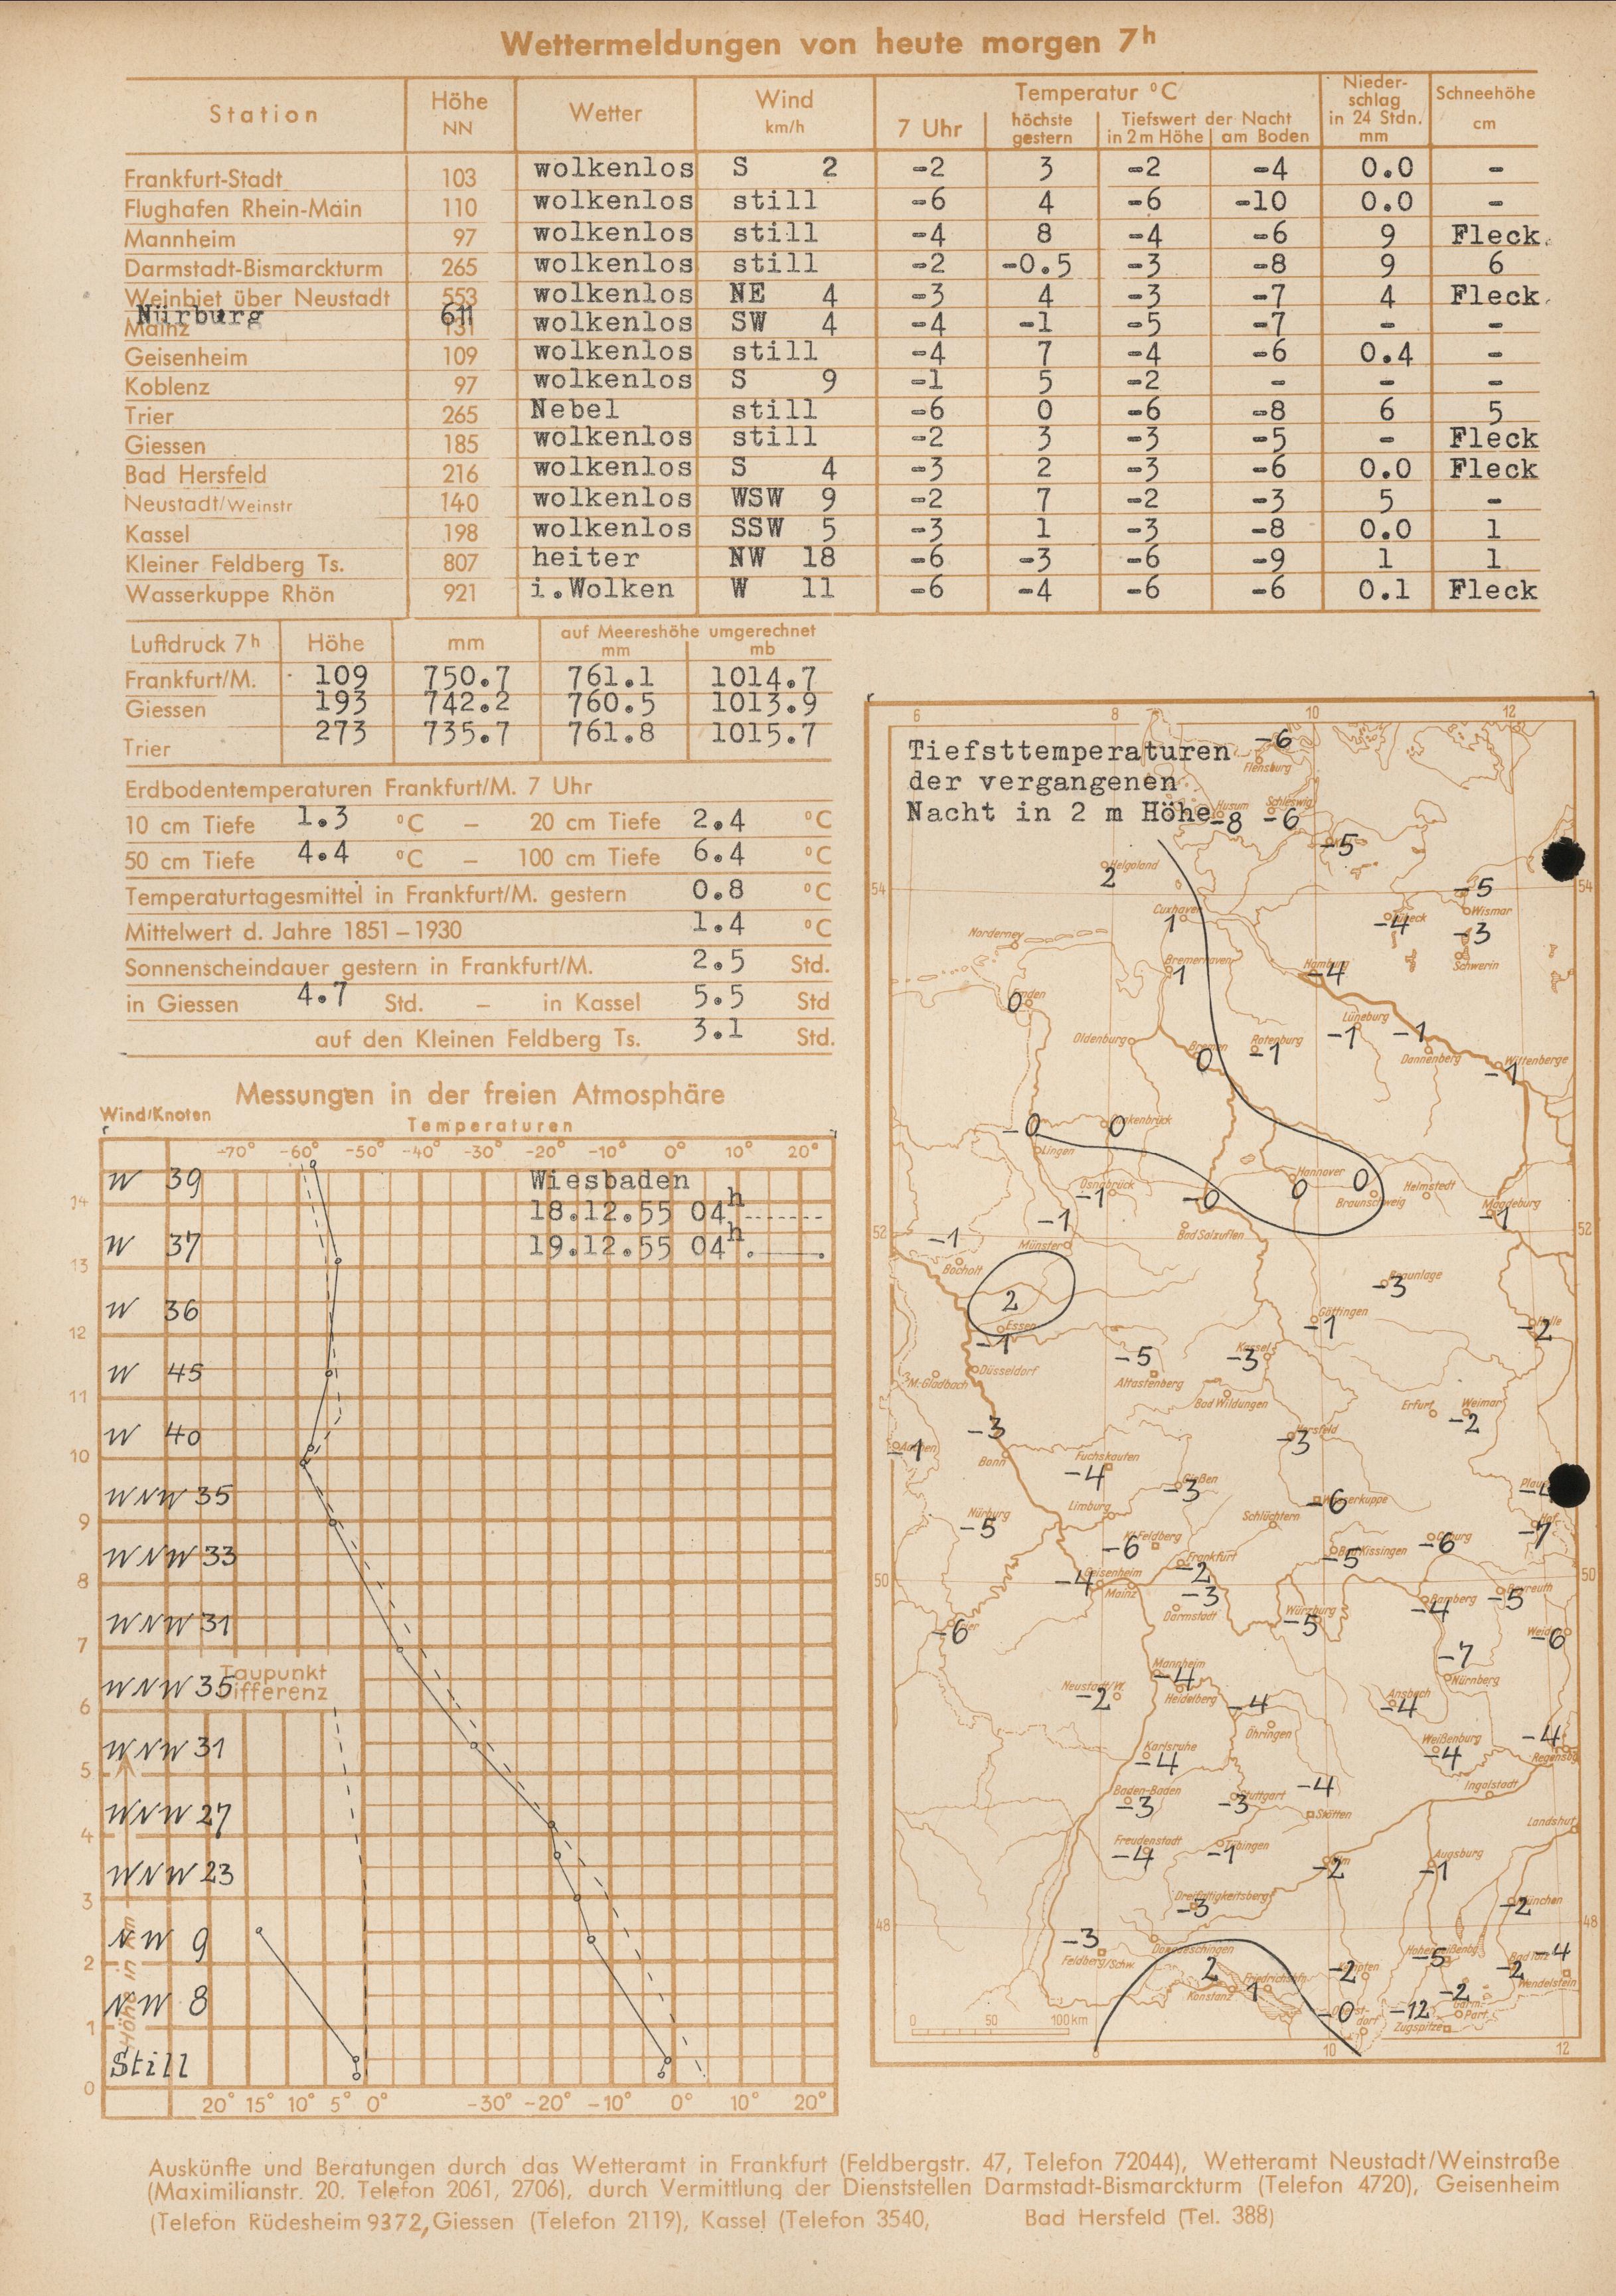 Wettermeldungen von heute morgen 7h
Station Höhe NN Wetter Wind km/h Temperatur °C Niederschlag in 24 Stdn. mm Schneehöhe cm
7 Uhr höchste gestern Tiefswert der Nacht in 2 m Höhe am Boden
Frankfurt-Stadt 103 wolkenlos S 2 -2 3 -2 -4 0.0 -
Flughafen Rhein-Main 110 wolkenlos still -6 4 -6 -10 0.0 -
Mannheim 97 wolkenlos still -4 8 -4 -6 9 Fleck.
Darmstadt-Bismarckturm 265 wolkenlos still -2 -0.5 -3 -8 9 6
Weinbiet über Neustadt 553 wolkenlos NE 4 -3 4 -3 -7 4 Fleck.
Nürburg 611 wolkenlos SW 4 -4 -1 -5 -7 - -
Mainz 131
Geisenheim 109 wolkenlos still -4 7 -4 -6 0.4 -
Koblenz 97 wolkenlos S 9 -1 5 -2 - - -
Trier 265 Nebel still -6 0 -6 -8 6 5
Giessen 185 wolkenlos still -2 3 -3 -5 - Fleck
Bad Hersfeld 216 wolkenlos S 4 -3 2 -3 -6 0.0 Fleck
Neustadt/Weinstr 140 wolkenlos WSW 9 -2 7 -2 -3 5 -
Kassel 198 wolkenlos SSW 5 -3 1 -3 -8 0.0 1
Kleiner Feldberg Ts. 807 heiter NW 18 -6 -3 -6 -9 1 1
Wasserkuppe Rhön 921 i.Wolken W 11 -6 -4 -6 -6 0.1 Fleck
Luftdruck 7h Höhe mm auf Meereshöhe umgerechnet mm mb
Frankfurt/M. 109 750.7 761.1 1014.7
Giessen 193 742.2 760.5 1013.9
Trier 273 735.7 761.8 1015.7
Erdbodentemperaturen Frankfurt/M. 7 Uhr
10 cm Tiefe 1.3 °C – 20 cm Tiefe 2.4 °C
50 cm Tiefe 4.4 °C – 100 cm Tiefe 6.4 °C
Temperaturtagesmittel in Frankfurt/M. gestern 0.8 °C
Mittelwert d. Jahre 1851–1930 1.4 °C
Sonnenscheindauer gestern in Frankfurt/M. 2.5 Std.
in Giessen 4.7 Std. – in Kassel 5.5 Std
auf den Kleinen Feldberg Ts. 3.1 Std.
Messungen in der freien Atmosphäre
Wind/Knoten Temperaturen
-70° -60° -50° -40° -30° -20° -10° 0° 10° 20°
W 39 Wiesbaden
14 18.12.55 04h
W 37 19.12.55 04h
13
W 36
12
W 45
11
W 40
10
WNW 35
9
WNW 33
8
WNW 31
7
WNW 35 Taupunkt Differenz
6
WNW 31
5
WNW 27
4
WNW 23
3
NW 9
2
NW 8
1
Still
0
Höhe in km
20° 15° 10° 5° 0° -30° -20° -10° 0° 10° 20°
6 8 10 12
Tiefsttemperaturen -6
der vergangenen Flensburg
Nacht in 2 m Höhe Husum -8 Schleswig -6
-5
Helgoland 2
54 -5 54
Cuxhaven 1 Lübeck -4 Wismar
Norderney -3
Bremerhaven 1 Hamburg -4 Schwerin
Emden 0
Lüneburg -1 -1
Oldenburg Bremen 0 Rotenburg -1 Dannenberg Wittenberge -1
-0 Lingen 0
Osnabrück -1 -0 Hannover 0 Braunschweig 0 Helmstedt Magdeburg -1
52 -1 -1 Münster Bad Salzuflen 52
Bocholt Braunlage -3
2 Essen Göttingen -1 Halle -2
-1 Düsseldorf -5 Kassel -3
M.-Gladbach Altastenberg
Bad Wildungen Erfurt Weimar -2
-3 Hersfeld -3
Aachen -1 Bonn Fuchskauten -4
Gießen -3
Nürburg -5 Limburg Wasserkuppe -6 Plauen
Schlüchtern Hof -7
Kl. Feldberg -6 Frankfurt -2 Bad Kissingen -5 Coburg -6
50 Geisenheim -4 Mainz -3 50
Darmstadt Würzburg -5 Bamberg -4 Bayreuth -5
Trier -6 Weiden -6
Mannheim -4 -7 Nürnberg
Neustadt/W. -2 Heidelberg -4 Ansbach -4
Öhringen -4
Karlsruhe -4 Weißenburg -4 Regensbg
Baden-Baden -3 Stuttgart -3 -4 Stötten Ingolstadt
Freudenstadt -4 Tübingen -1 Landshut
Ulm -2 Augsburg -1
Dreifaltigkeitsberg -3 München -2
48 -3 48
Feldberg/Schw. Donaueschingen 2 Hohenpeißenbg -5 Bad Tölz -2 -4
Konstanz Friedrichshfn. 1 Kempten -2 Wendelstein
-2
Oberstdorf -0 -12 Zugspitze Garm.-Part.
0 50 100 km
8 10 12
Auskünfte und Beratungen durch das Wetteramt in Frankfurt (Feldbergstr. 47, Telefon 72044), Wetteramt Neustadt/Weinstraße
(Maximilianstr. 20. Telefon 2061, 2706), durch Vermittlung der Dienststellen Darmstadt-Bismarckturm (Telefon 4720), Geisenheim
(Telefon Rüdesheim 9372, Giessen (Telefon 2119), Kassel (Telefon 3540, Bad Hersfeld (Tel. 388)